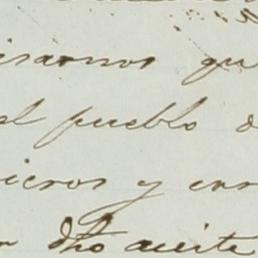 isarnos qu
el pueblo d
icros y en
n dho aceite